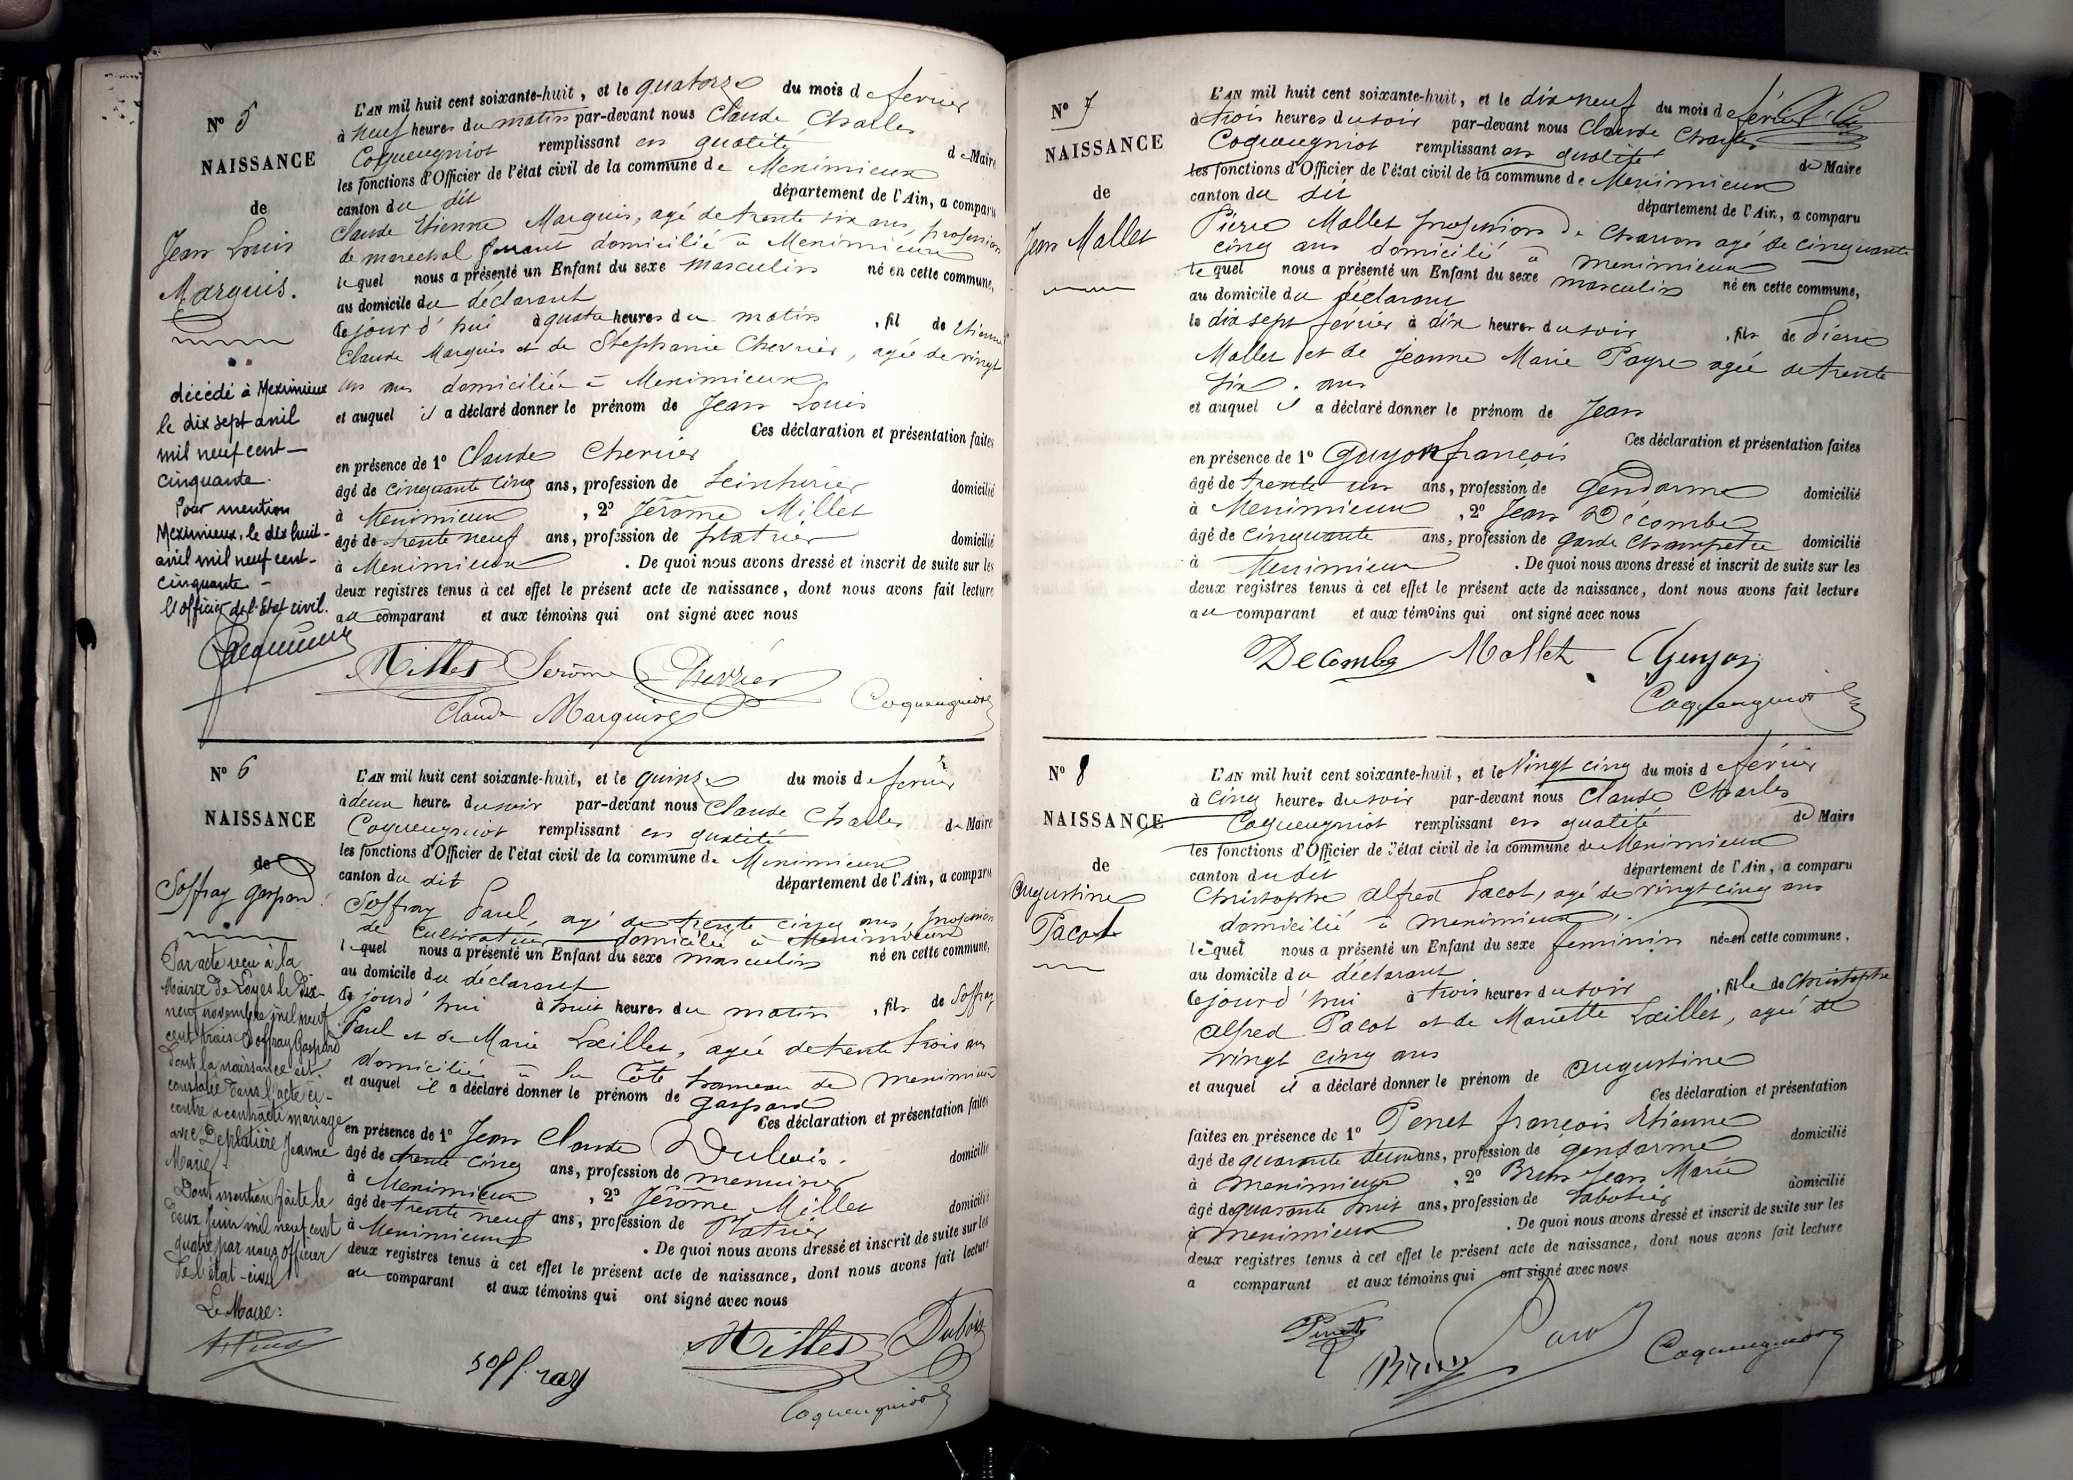 N° 5
NAISSANCE
de
Jean Louis
Marquis.
décédé à Meximieux
le dix sept avril
mil neuf cent
cinquante.
Pour mention
Meximieux, le dix huit
avril mil neuf cent
cinquante
L'officier de l'Etat civil.
L'AN mil huit cent soixante-huit, et le quatorze du mois de février
à neuf heures du matin par-devant nous Claude Charles
Coqueugniot remplissant en qualité de Maire
les fonctions d'Officier de l'état civil de la commune de Meximieux
canton du dit département de l'Ain, a comparu
Claude Etienne Marquis, agé de trente six ans, profession
de marechal ferrant domicilié à Meximieux
lequel nous a présenté un Enfant du sexe masculin né en cette commune,
au domicile du déclarant
Ce jour d'hui à quatre heures du matin, fils de Etienne
Claude Marquis et de Stephanie Chevrier, agée de vingt
un ans domiciliée à Meximieux
et auquel il a déclaré donner le prénom de Jean Louis
Ces déclaration et présentation faites
en présence de 1° Claude Chevrier
âgé de cinquante cinq ans, profession de teinturier domicilié
à Meximieux, 2° Jérôme Millet
âgé de trente neuf ans, profession de platrier domicilié
à Meximieux. De quoi nous avons dressé et inscrit de suite sur les
deux registres tenus à cet effet le présent acte de naissance, dont nous avons fait lecture
au comparant et aux témoins qui ont signé avec nous
Millet Jerôme Chevrier
Claude Marquis Coqueugniot
N° 6
NAISSANCE
de
Soffray Gaspard
Par acte reçu à la
Mairie de Loyes le dix-
neuf novembre mil neuf
cent trois Soffray Gaspard
dont la naissance est
constatée dans l'acte ci-
contre a contracté mariage
avec Deplatière Jeanne
Marie.
Dont mention faite le
deux juin mil neuf cent
quatre par nous officier
de l'état-civil
Le Maire:
L'AN mil huit cent soixante-huit, et le quinze du mois de février
à deux heures du soir par-devant nous Claude Charles
Coqueugniot remplissant en qualité de Maire
les fonctions d'Officier de l'état civil de la commune de Meximieux
canton du dit département de l'Ain, a comparu
Soffray Paul, agé de trente cinq ans, profession
de cultivateur domicilié à Meximieux
lequel nous a présenté un Enfant du sexe masculin né en cette commune,
au domicile du déclarant
Ce jourd'hui à huit heures du matin, fils de Soffray
Paul et de Marie Lxillet, agée de trente trois ans
domiciliée à la Côte hameau de Meximieux
et auquel il a déclaré donner le prénom de gaspard
Ces déclaration et présentation faites
en présence de 1° Jean Claude Dubois.
âgé de trente cinq ans, profession de menuisier domicilié
à Meximieux, 2° Jérôme Millet
âgé de trente neuf ans, profession de Platrier domicilié
à Meximieux. De quoi nous avons dressé et inscrit de suite sur les
deux registres tenus à cet effet le présent acte de naissance, dont nous avons fait lecture
au comparant et aux témoins qui ont signé avec nous
Soffray Millet Dubois
Coqueugniot
N° 7
NAISSANCE
de
Jean Mallet
L'AN mil huit cent soixante-huit, et le dix neuf du mois de février
à trois heures du soir par-devant nous Claude Charles
Coqueugniot remplissant en qualité de Maire
les fonctions d'Officier de l'état civil de la commune de Meximieux
canton du dit département de l'Ain, a comparu
Pierre Mallet profession de charron agé de cinquante
cinq ans domicilié à Meximieux
lequel nous a présenté un Enfant du sexe masculin né en cette commune,
au domicile du déclarant
le dix sept février à dix heures du soir, fils de Pierre
Mallet et de Jeanne Marie Payre agée de trente
six ans
et auquel il a déclaré donner le prénom de Jean
Ces déclaration et présentation faites
en présence de 1° Guyon françois
âgé de trente un ans, profession de Gendarme domicilié
à Meximieux, 2° Jean Décombe
âgé de cinquante ans, profession de garde champetre domicilié
à Meximieux. De quoi nous avons dressé et inscrit de suite sur les
deux registres tenus à cet effet le présent acte de naissance, dont nous avons fait lecture
au comparant et aux témoins qui ont signé avec nous
Decombe Mallet Guyon
Coqueugniot
N° 8
NAISSANCE
de
Augustine
Pacot
L'AN mil huit cent soixante-huit, et le Vingt cinq du mois de février
à cinq heures du soir par-devant nous Claude Charles
Coqueugniot remplissant en qualité de Maire
les fonctions d'Officier de l'état civil de la commune de Meximieux
canton du dit département de l'Ain, a comparu
Christophe Alfred Pacot, agé de vingt cinq ans
domicilié à Meximieux
lequel nous a présenté un Enfant du sexe feminin né en cette commune.
au domicile du déclarant
Ce jourd'hui à trois heures du soir, fille de Christophe
Alfred Pacot et de Mariette Lxillet, agée de
vingt cinq ans
et auquel il a déclaré donner le prénom de Augustine
Ces déclaration et présentation
faites en présence de 1° Penet françois Etienne
âgé de quarante deux ans, profession de gendarme domicilié
à Meximieux, 2° Brun Jean Marie
âgé de quarante huit ans, profession de Sabotier domicilié
à Meximieux. De quoi nous avons dressé et inscrit de suite sur les
deux registres tenus à cet effet le présent acte de naissance, dont nous avons fait lecture
a comparant et aux témoins qui ont signé avec nous
Penet Brun Pacot Coqueugniot